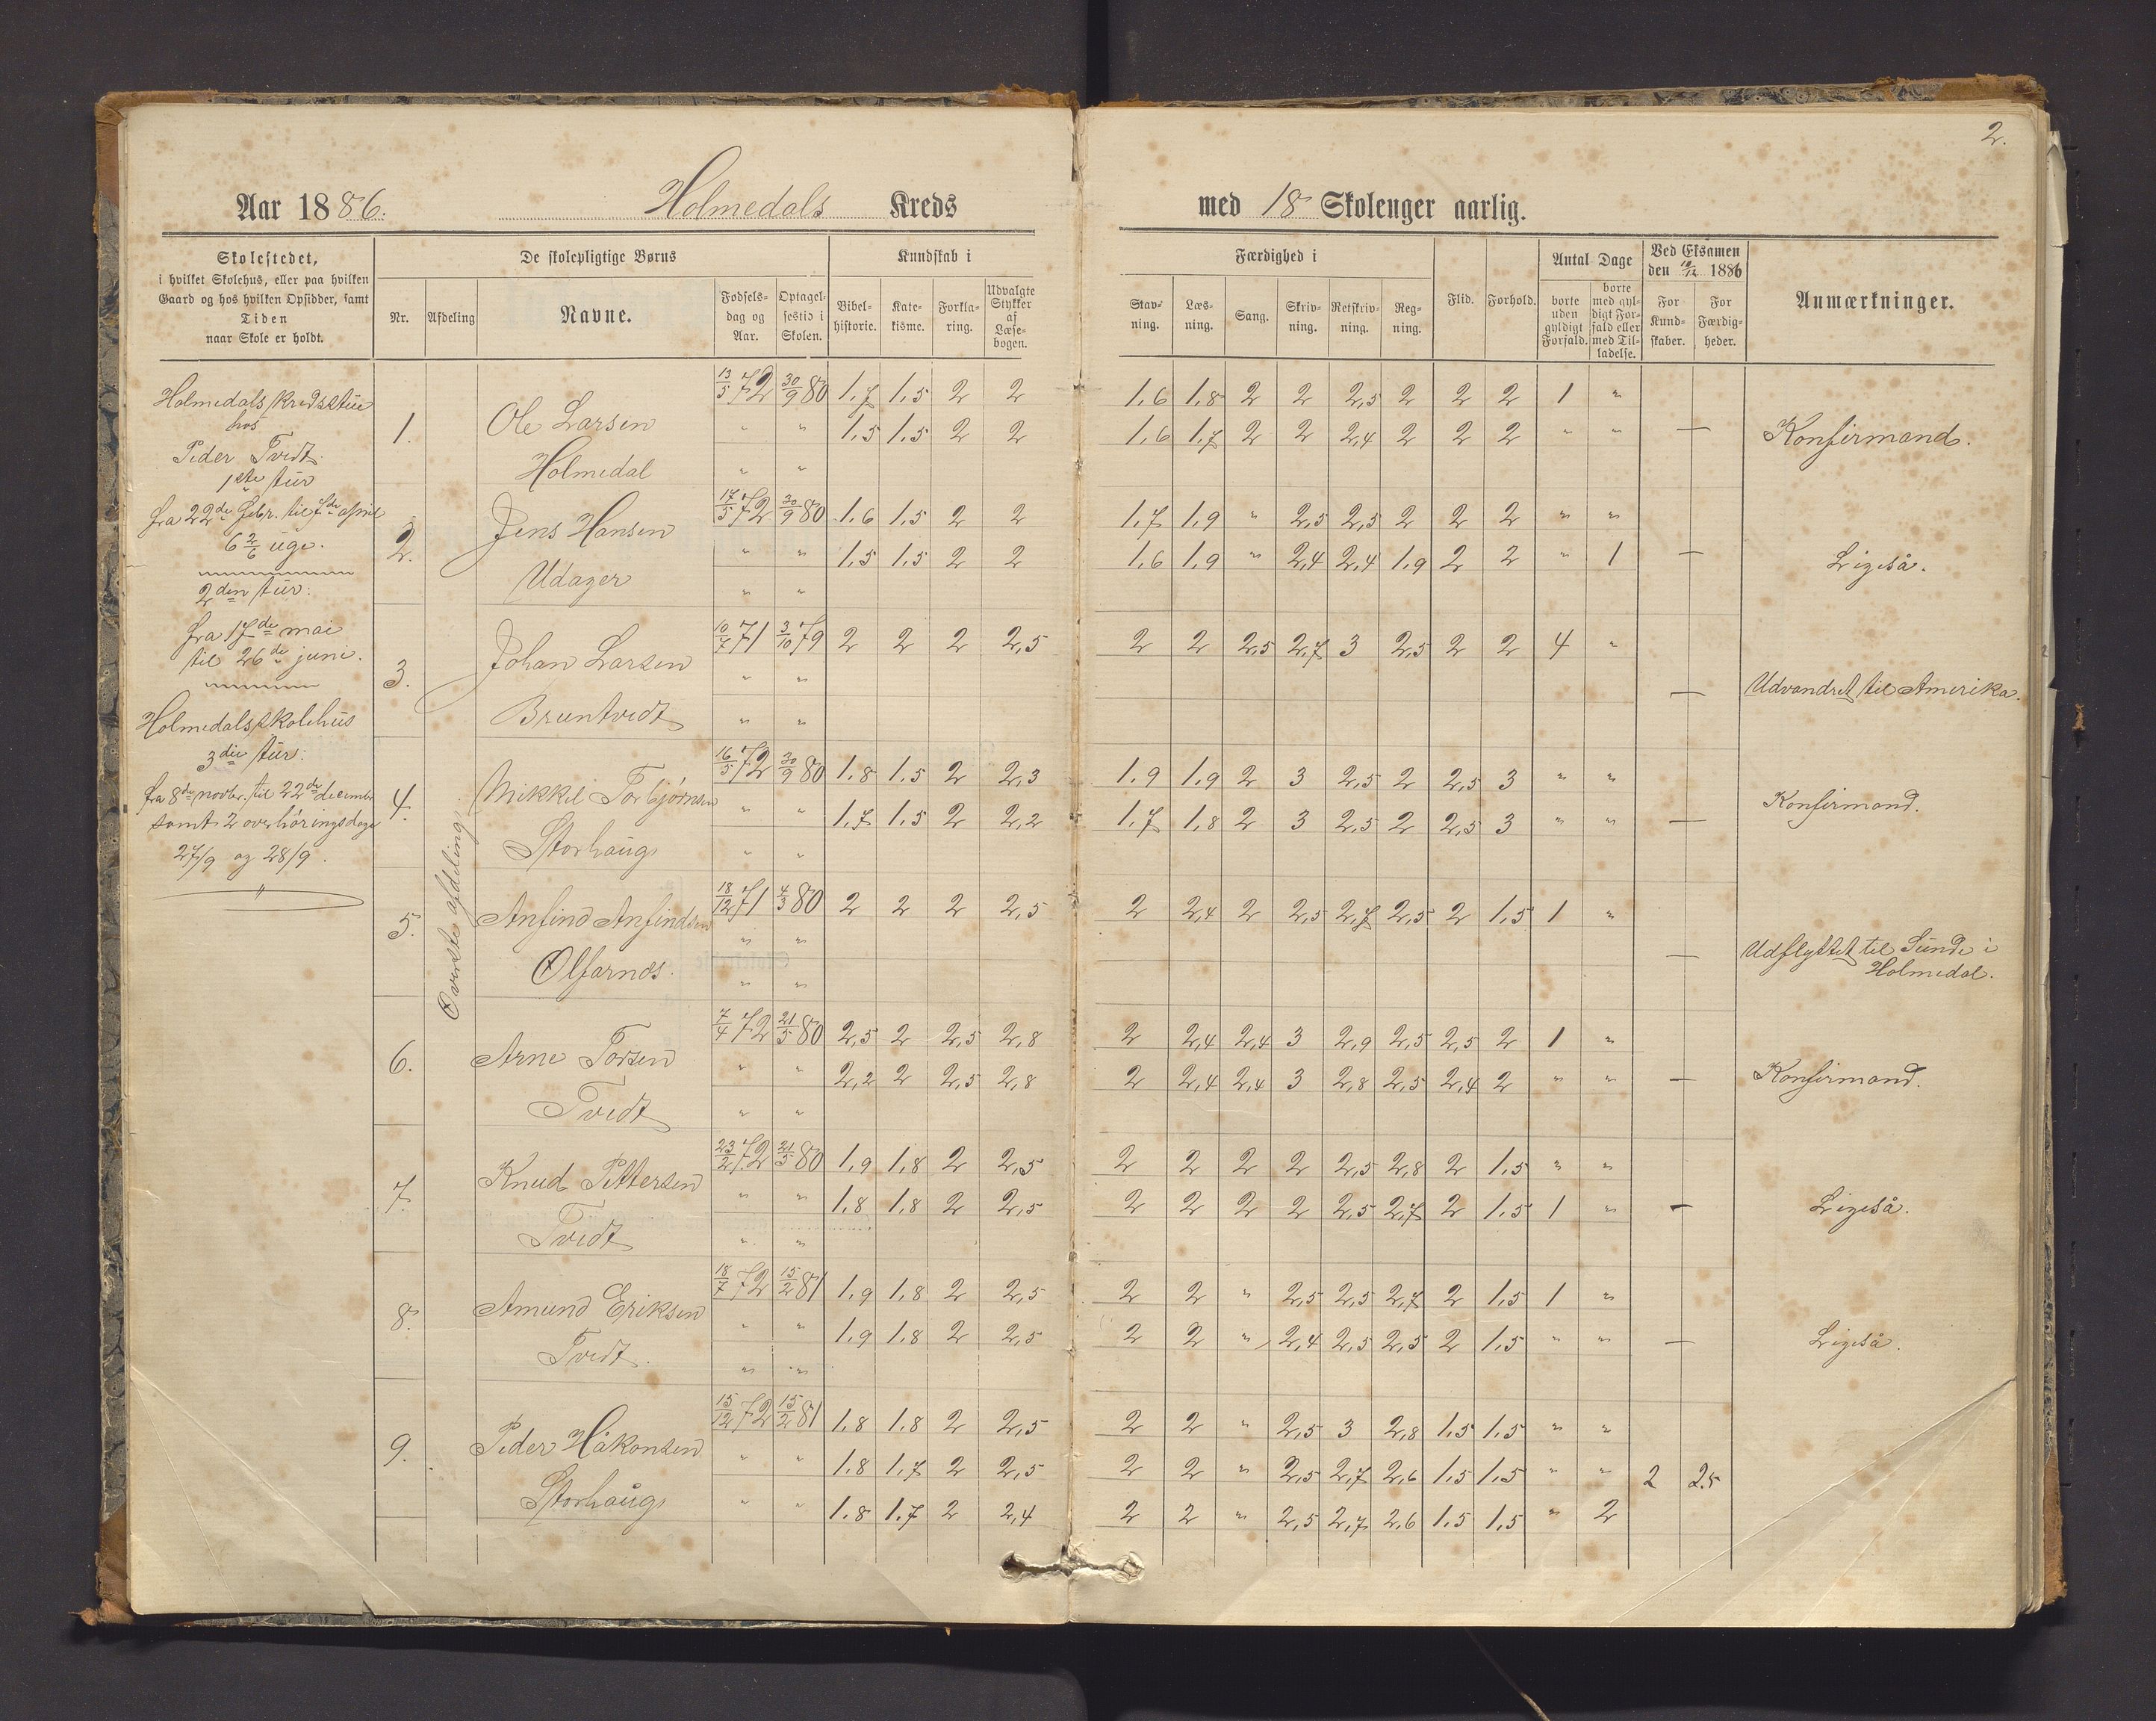 2.
Aar 1886. Holmedals Kreds med 18 Skoleuger aarlig.
Skolestedet,
i hvilket Skolehus, eller paa hvilken
Gaard og hos hvilken Opsidder, samt
Tiden
naar Skole er holdt.
De skolepligtige Børns
Nr. Afdeling Navne. Fødselsdag og Aar. Optagelsestid i Skolen.
Kundskab i
Bibelhistorie. Katekisme. Forklaring. Udvalgte Stykker af Læsebogen.
Færdighed i
Stavning. Læsning. Sang. Skrivning. Retskrivning. Regning.
Flid. Forhold.
Antal Dage
borte uden gyldigt Forfald. borte med gyldigt Forfald eller med Tilladelse.
Ved Eksamen
den 10/12 1886
For Kundskaber. For Færdigheder.
Anmærkninger.
Holmedals kredsstue
hos
Peder Tvedt.
1ste tur
fra 22de febr. til 7de april
6 2/6 uge.
2den tur:
fra 17de mai
til 26de juni.
Holmedals skolehus
3die tur:
fra 8de novbr. til 22de decembr
samt 2 overhøringsdage
27/9 og 28/9.
Øverste afdeling
13/5 72 30/9 80 1,7 1,5 2 2 1,6 1,8 2 2 2,5 2 2 2 1 "
1. Ole Larsen " " 1,5 1,5 2 2 1,6 1,7 2 2 2,4 2 2 2 " " — Konfirmand.
Holmedal " "
17/5 72 30/9 80 1,6 1,5 2 2 1,7 1,9 " 2,5 2,5 2 2 2 " "
2. Jens Hansen " " 1,5 1,5 2 2 1,6 1,9 " 2,4 2,4 1,9 2 2 " 1 — Ligeså.
Udager " "
10/7 71 3/10 79 2 2 2 2,5 2 2 2,5 2,7 3 2,5 2 2 4 "
3. Johan Larsen " " — Udvandret til Amerika.
Bruntvedt " "
16/5 72 30/9 80 1,8 1,5 2 2,3 1,9 1,9 2 3 2,5 2 2,5 3 " "
4. Mikkel Torbjørnsen " " 1,7 1,5 2 2,2 1,7 1,8 2 3 2,5 2 2,5 3 " " — Konfirmand.
Storhaug " "
18/12 71 4/3 80 2 2 2 2,5 2 2,4 2 2,5 2,7 2,5 2 1,5 1 "
5. Anfind Anfindsen " " — Udflyttet til Sunde i
Holmedal.
Ølfarnes. " "
7/4 72 21/5 80 2,5 2 2,5 2,8 2 2,4 2,4 3 2,9 2,5 2,5 2 1 "
6. Arne Torsen " " 2,2 2 2,5 2,8 2 2,4 2,4 3 2,8 2,5 2,4 2 " " — Konfirmand.
Tvedt " "
23/2 72 21/5 80 1,9 1,8 2 2,5 2 2 2 2 2,5 2,8 2 1,5 " "
7. Knud Pettersen " " 1,8 1,8 2 2,5 2 2 2 2 2,5 2,7 2 1,5 1 " — Ligeså.
Tvedt " "
18/7 72 15/2 81 1,9 1,8 2 2,5 2 2 " 2,5 2,5 2,7 2 1,5 1 "
8. Amund Eriksen " " 1,9 1,8 2 2,5 2 2 " 2,4 2,5 2,5 2 1,5 " " — Ligeså.
Tvedt. " "
15/12 72 15/2 81 1,8 1,8 2 2,5 2 2 " 2,5 3 2,8 1,5 1,5 " "
9. Peder Håkonsen " " 1,8 1,7 2 2,5 2 2 " 2,5 2,7 2,6 1,5 1,5 " " 2 2.5
Storhaug " " 1,8 1,7 2 2,4 2 2 " 2,5 2,7 2,6 1,5 1,5 " 2